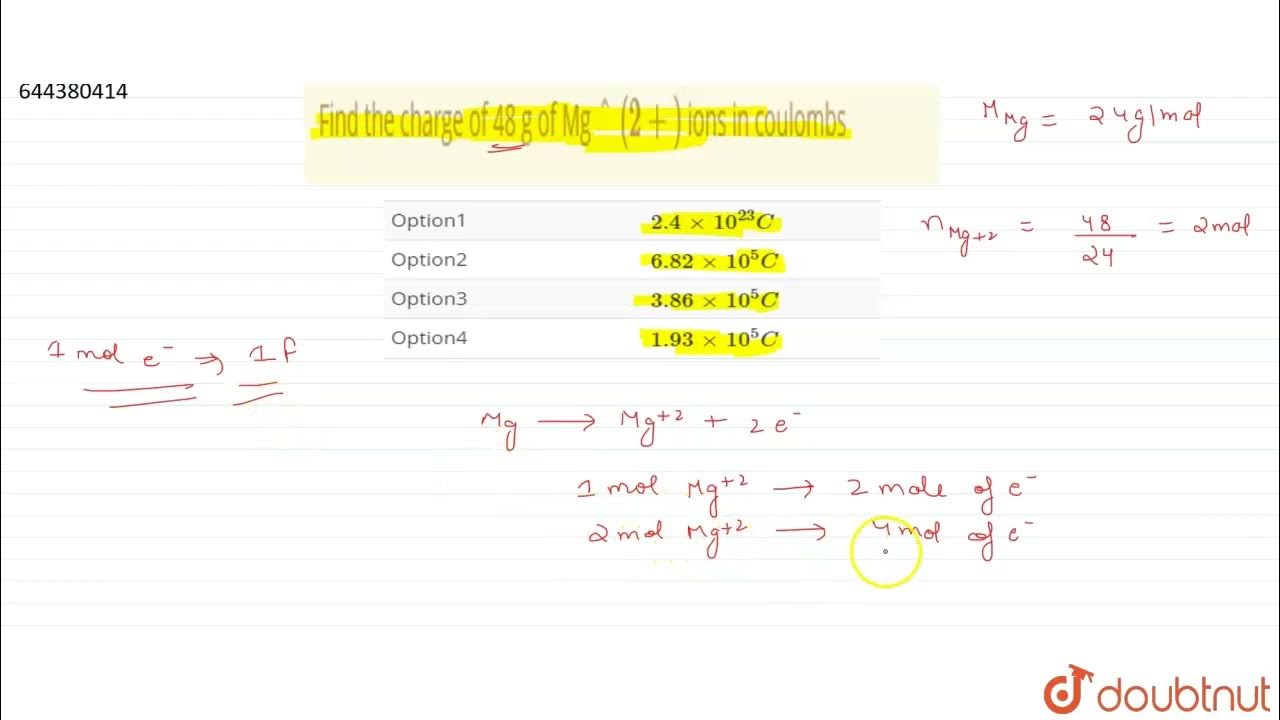 644380414
Find the charge of 48 g of Mg ^ (2+) ions in coulombs
M Mg = 24g/mol
Option1 2.4 × 10^23 C
Option2 6.82 × 10^5 C
Option3 3.86 × 10^5 C
Option4 1.93 × 10^5 C
n Mg+2 = 48/24 = 2mol
1 mol e⁻ → 1 f
Mg → Mg+2 + 2e⁻
1 mol Mg+2 → 2 mole of e⁻
2 mol Mg+2 → 4 mol of e⁻
doubtnut